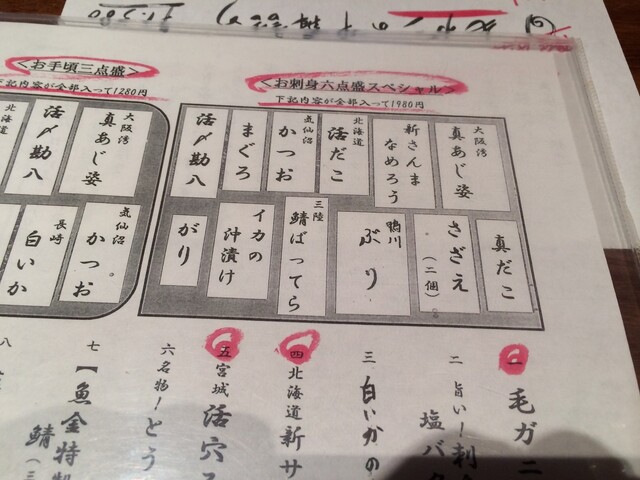 お刺身六点盛スペシャル
下記内容が全部入って1980円
大阪湾
真あじ姿
新さんま
なめろう
北海道
活だこ
気仙沼
かつお
まぐろ
活〆勘八
真だこ
さざえ
(二個)
鴨川
ぶり
三陸
鯖ばってら
イカの
沖漬け
がり
お手頃三点盛
下記内容が全部入って1280円
大阪湾
真あじ姿
活〆勘八
北海道
気仙沼
かつお
長崎
白いか
一 毛ガニ
二 旨い!刺
塩バ
三 白いかの
四 北海道 新サ
五 宮城 活穴
六 名物!とう
七 【魚金特
鯖(三
八